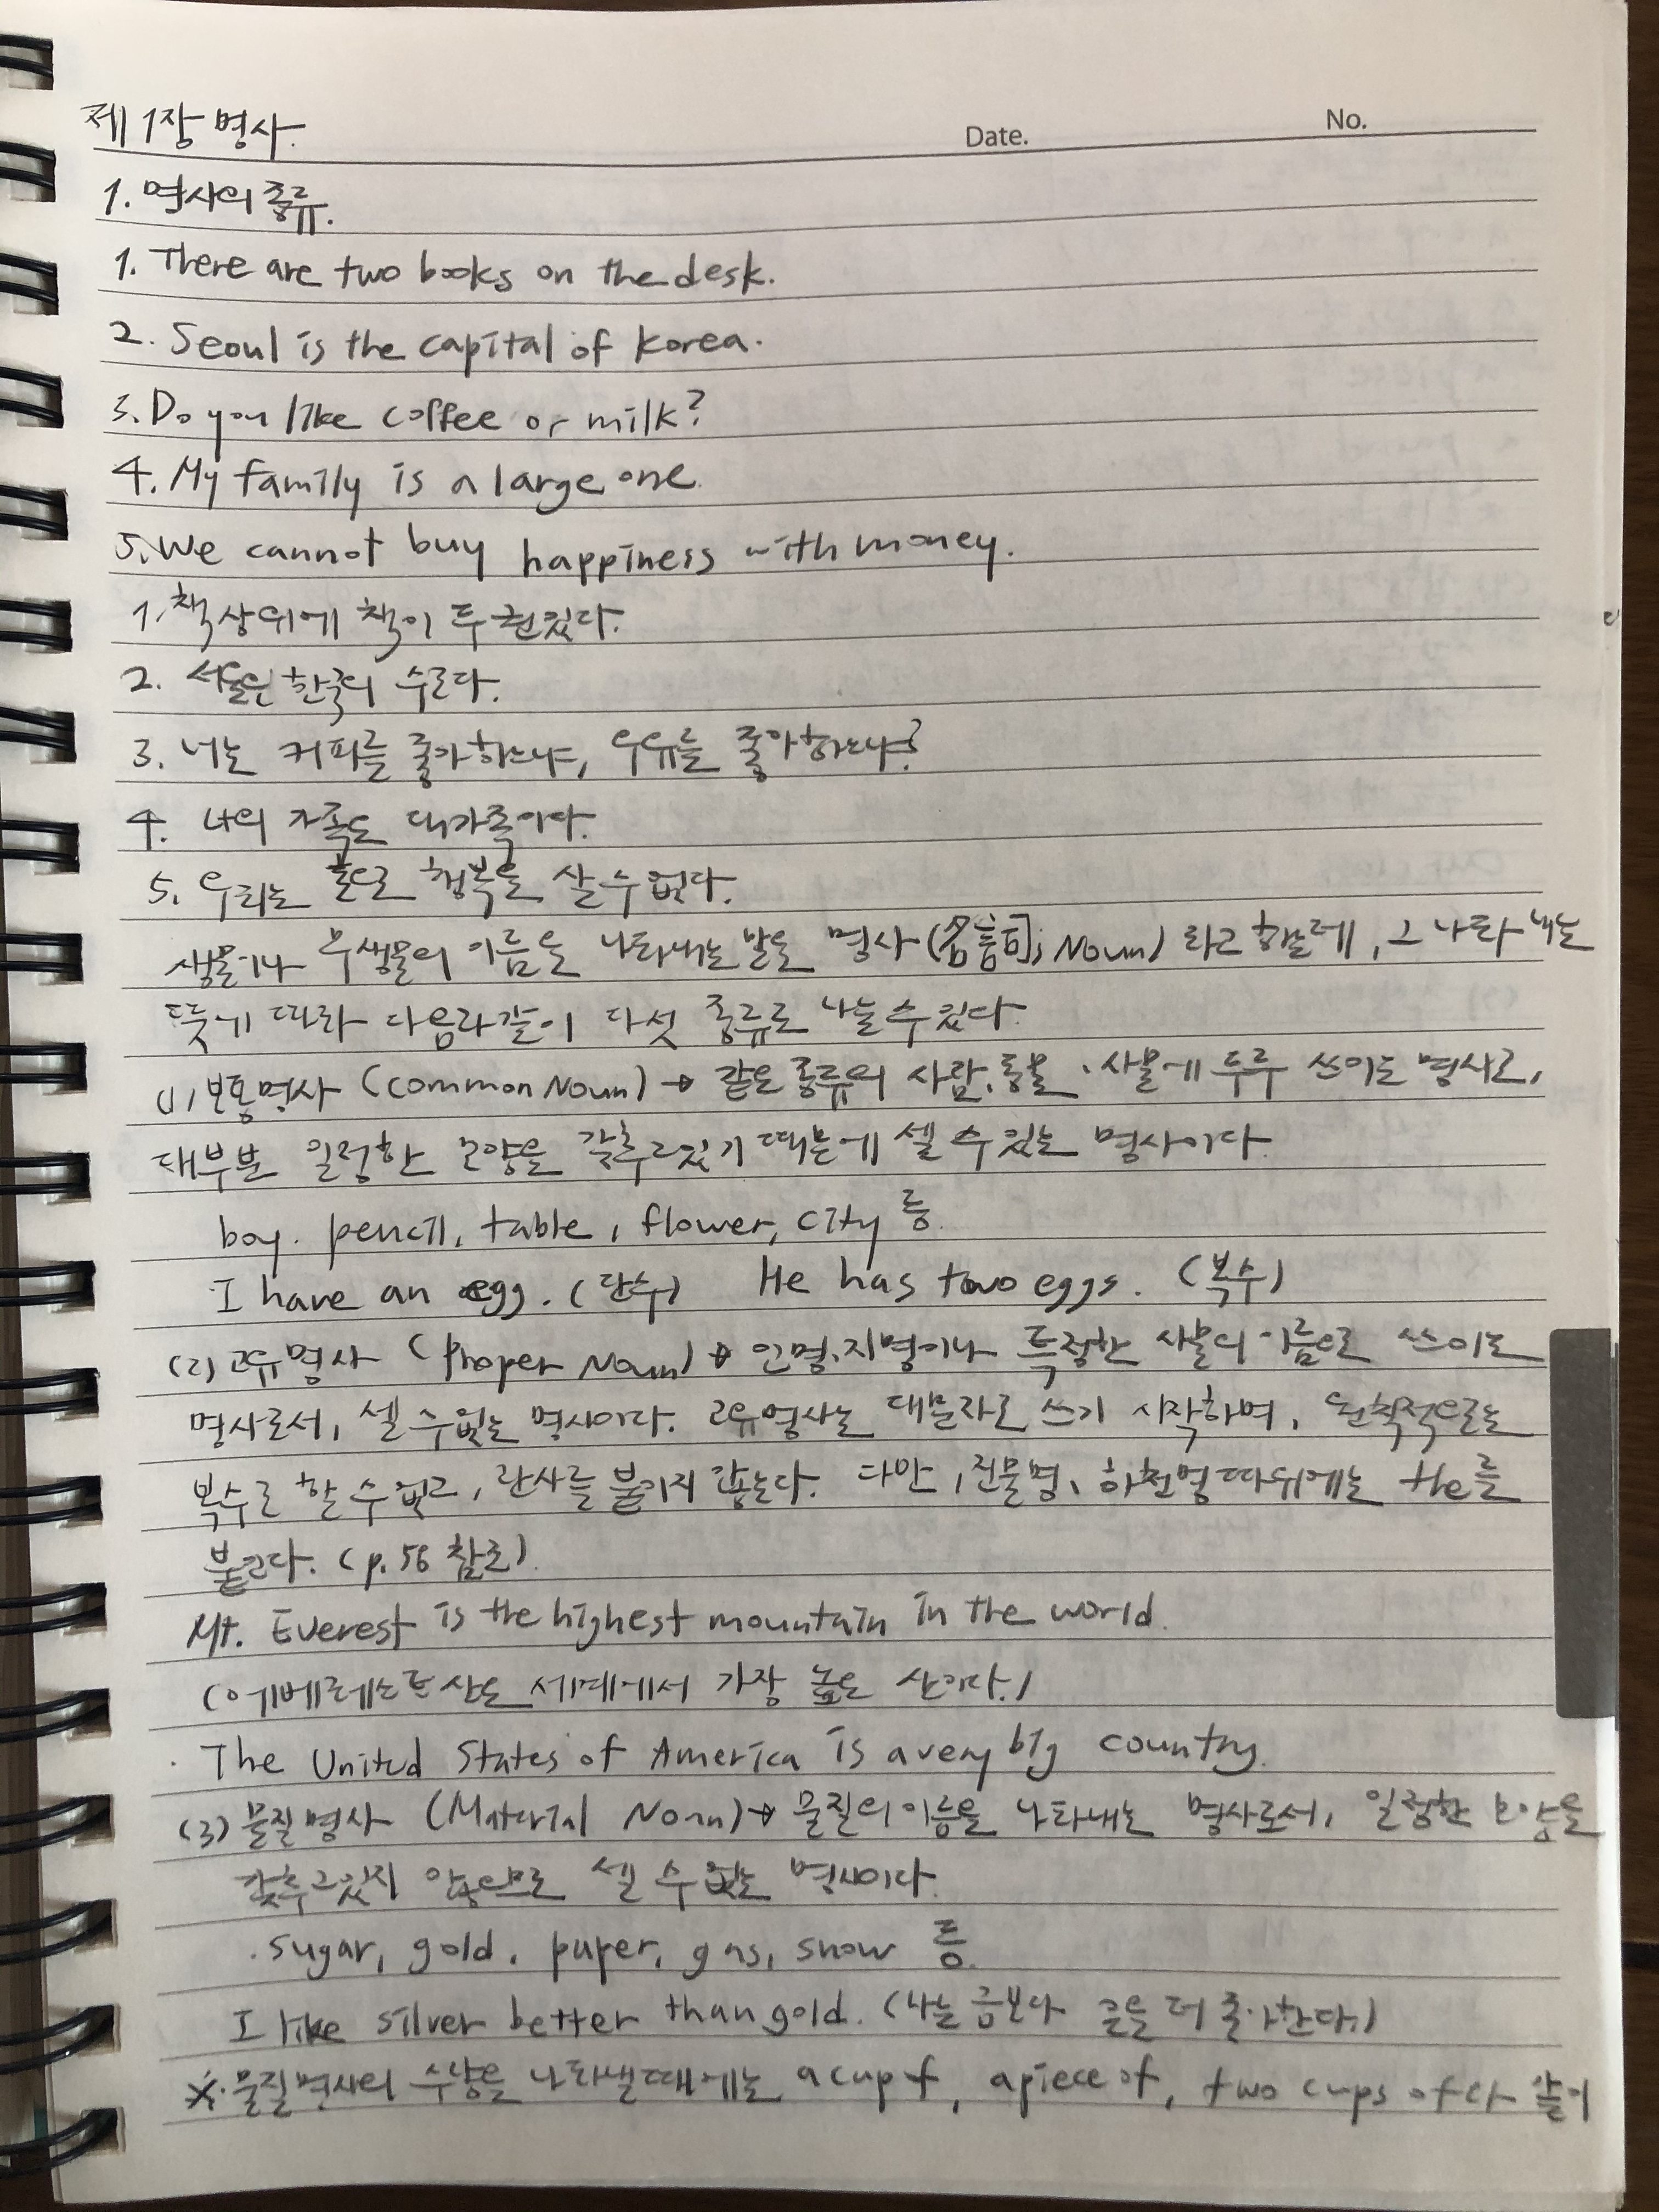 제1장 명사.
Date. No.
1. 명사의 종류.
1. There are two books on the desk.
2. Seoul is the capital of Korea.
3. Do you like coffee or milk?
4. My family is a large one.
5. We cannot buy happiness with money.
1. 책상위에 책이 두 권있다.
2. 서울은 한국의 수도다.
3. 너는 커피를 좋아하느냐, 우유를 좋아하느냐?
4. 나의 가족은 대가족이다.
5. 우리는 돈으로 행복을 살 수 없다.
생물이나 무생물의 이름을 나타내는 말을 명사(名詞; Noun) 라고 하는데, 그 나타내는
뜻에 따라 다음과 같이 다섯 종류로 나눌 수 있다.
(1) 보통명사 (Common Noun) → 같은 종류의 사람, 동물, 사물에 두루 쓰이는 명사로,
대부분 일정한 모양을 갖추고 있기 때문에 셀 수 있는 명사이다.
boy. pencil, table, flower, city 등.
I have an egg. (단수) He has two eggs. (복수)
(2) 고유명사 (Proper Noun) → 인명, 지명이나 특정한 사물의 이름으로 쓰이는
명사로서, 셀 수 없는 명사이다. 고유명사는 대문자로 쓰기 시작하며, 원칙적으로는
복수로 할 수 없고, 관사를 붙이지 않는다. 다만, 건물명, 하천명 따위에는 the를
붙인다. (p.56 참조).
Mt. Everest is the highest mountain in the world.
(에베레스트 산은 세계에서 가장 높은 산이다.)
· The United States of America is a very big country.
(3) 물질명사 (Material Noun) → 물질의 이름을 나타내는 명사로서, 일정한 모양을
갖추고 있지 않으므로 셀 수 없는 명사이다.
· sugar, gold, paper, gas, snow 등.
I like silver better than gold. (나는 금보다 은을 더 좋아한다.)
※ 물질명사의 수량을 나타낼 때에는 a cup of, a piece of, two cups of 와 같이